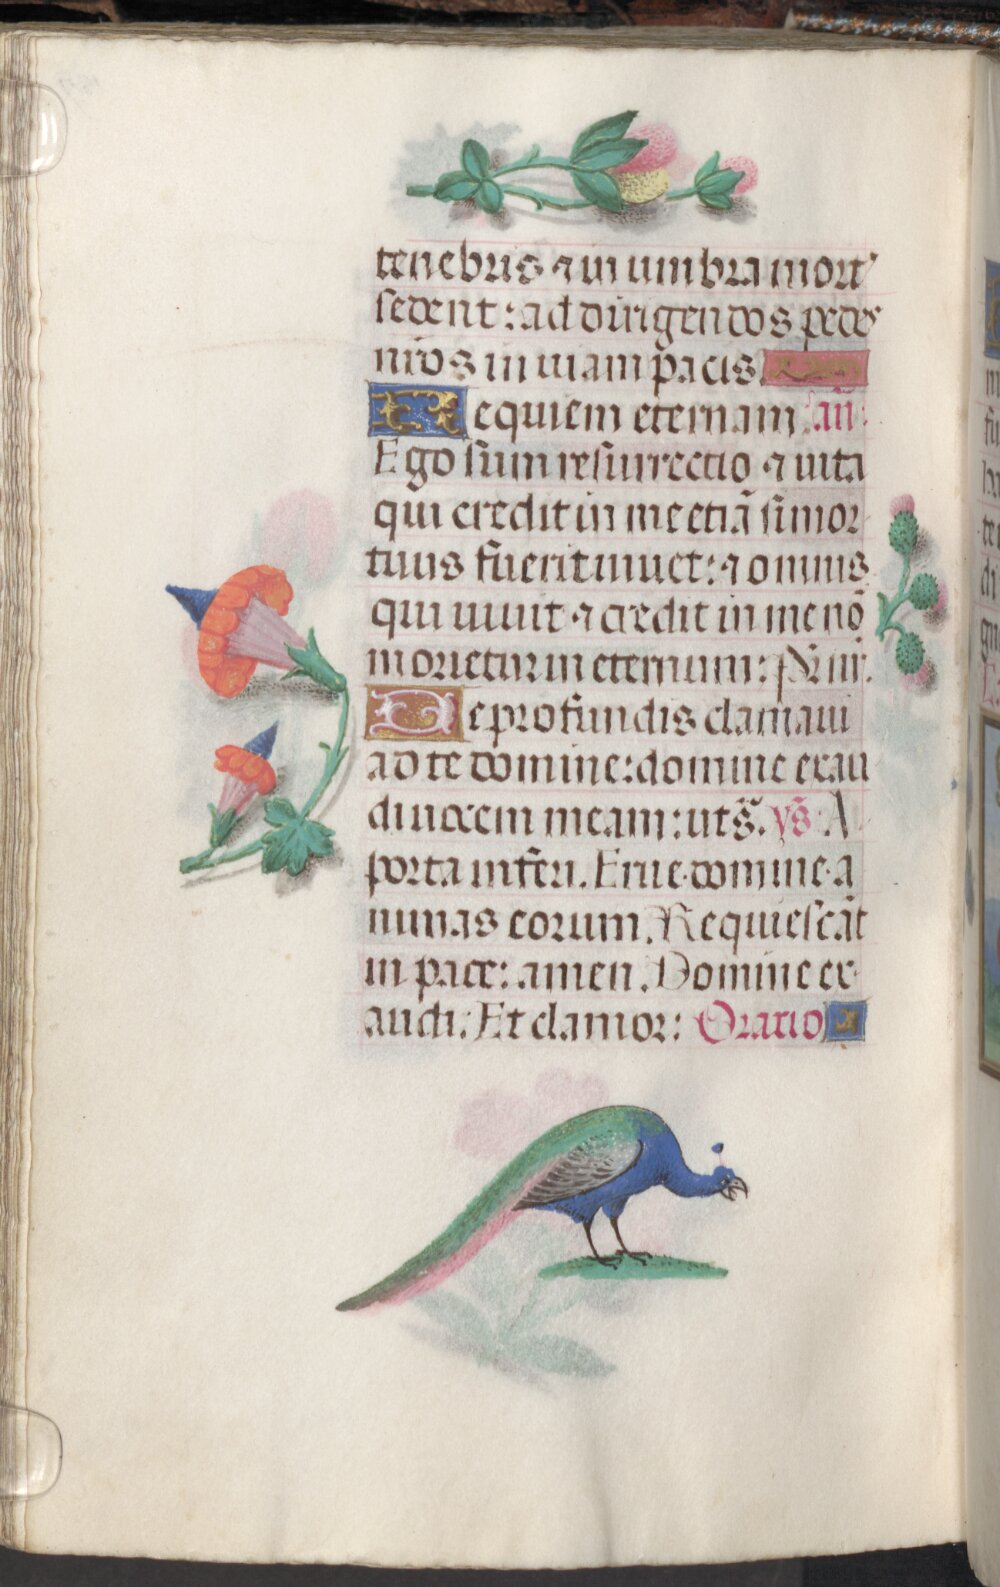 tenebris ⁊ in umbra mort᾽
sedent: ad dirigendos pedes
nr̄os in uiam pacis.
Requiem eternam. añ.
Ego sum resurrectio ⁊ uita
qui credit in me etiā si mor
tuus fuerit uiuet: ⁊ omnis
qui uiuit ⁊ credit in me nō
morietur in eternum:
De profundis clamaui
ad te domine: domine exau
di uocem meam: ut s̄. vs̄. A
porta inferi. Erue domine a
nimas eorum. Requiescāt
in pace: amen. Domine ex
audi. Et clamor: Oratio